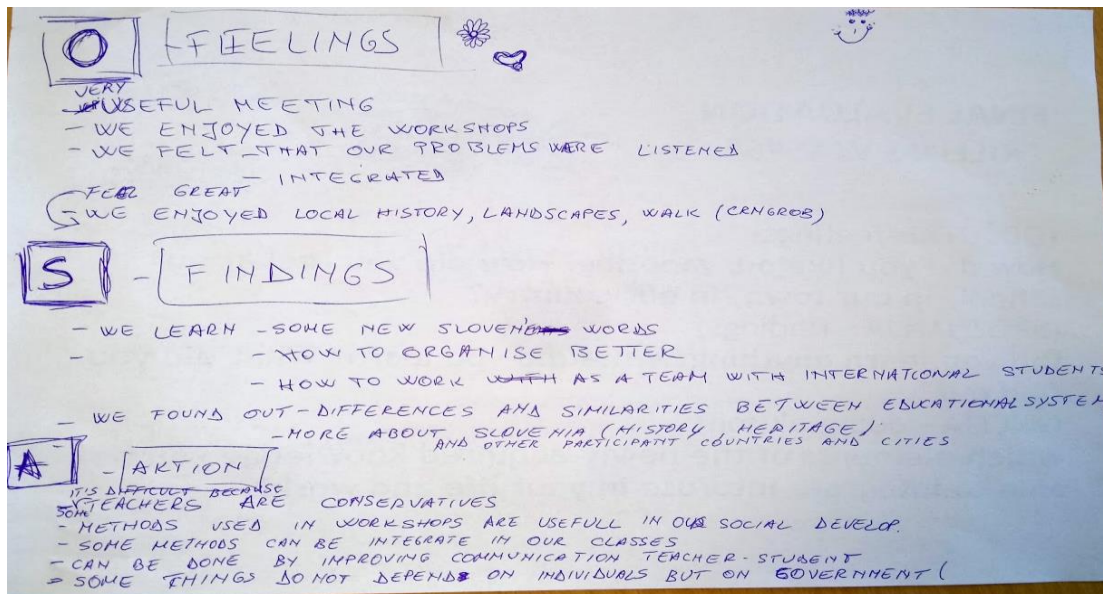 O - FEELINGS
VERY
- USEFUL MEETING
- WE ENJOYED THE WORKSHOPS
- WE FELT - THAT OUR PROBLEMS WERE LISTENED
- INTEGRATED
FEEL GREAT
- WE ENJOYED LOCAL HISTORY, LANDSCAPES, WALK (CRNGROB)
S - FINDINGS
- WE LEARN - SOME NEW SLOVEN WORDS
- - HOW TO ORGANISE BETTER
- HOW TO WORK WITH AS A TEAM WITH INTERNATIONAL STUDENTS
- WE FOUND OUT - DIFFERENCES AND SIMILARITIES BETWEEN EDUCATIONAL SYSTEM
- MORE ABOUT SLOVENIA (HISTORY HERITAGE)
AND OTHER PARTICIPANT COUNTRIES AND CITIES
A - AKTION
IT'S DIFFICULT BECAUSE
SOME TEACHERS ARE CONSERVATIVES
- METHODS USED IN WORKSHOPS ARE USEFULL IN OUR SOCIAL DEVELOP.
- SOME METHODS CAN BE INTEGRATE IN OUR CLASSES
- CAN BE DONE BY IMPROVING COMMUNICATION TEACHER-STUDENT
- SOME THINGS DO NOT DEPEND ON INDIVIDUALS BUT ON GOVERNMENT (